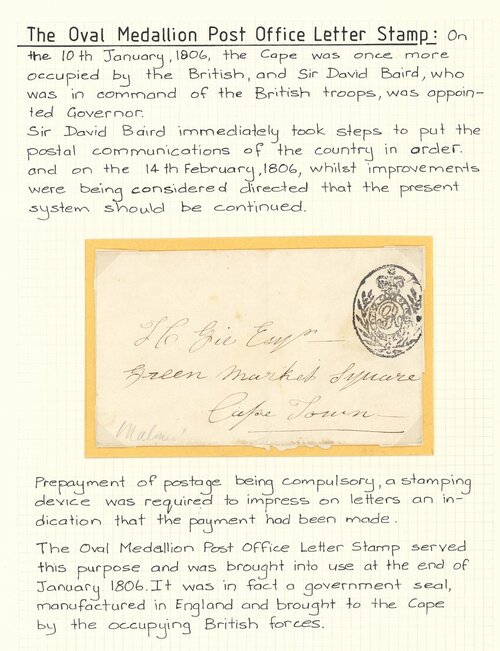 The Oval Medallion Post Office Letter Stamp: On
the 10th January, 1806, the Cape was once more
occupied by the British, and Sir David Baird, who
was in command of the British troops, was appoin-
ted Governor.
Sir David Baird immediately took steps to put the
postal communications of the country in order.
and on the 14th February, 1806, whilst improvements
were being considered directed that the present
system should be continued.
Esqr
Green Market Square
Cape Town
Prepayment of postage being compulsory, a stamping
device was required to impress on letters an in-
dication that the payment had been made.
The Oval Medallion Post Office Letter Stamp served
this purpose and was brought into use at the end of
January 1806. It was in fact a government seal,
manufactured in England and brought to the Cape
by the occupying British forces.